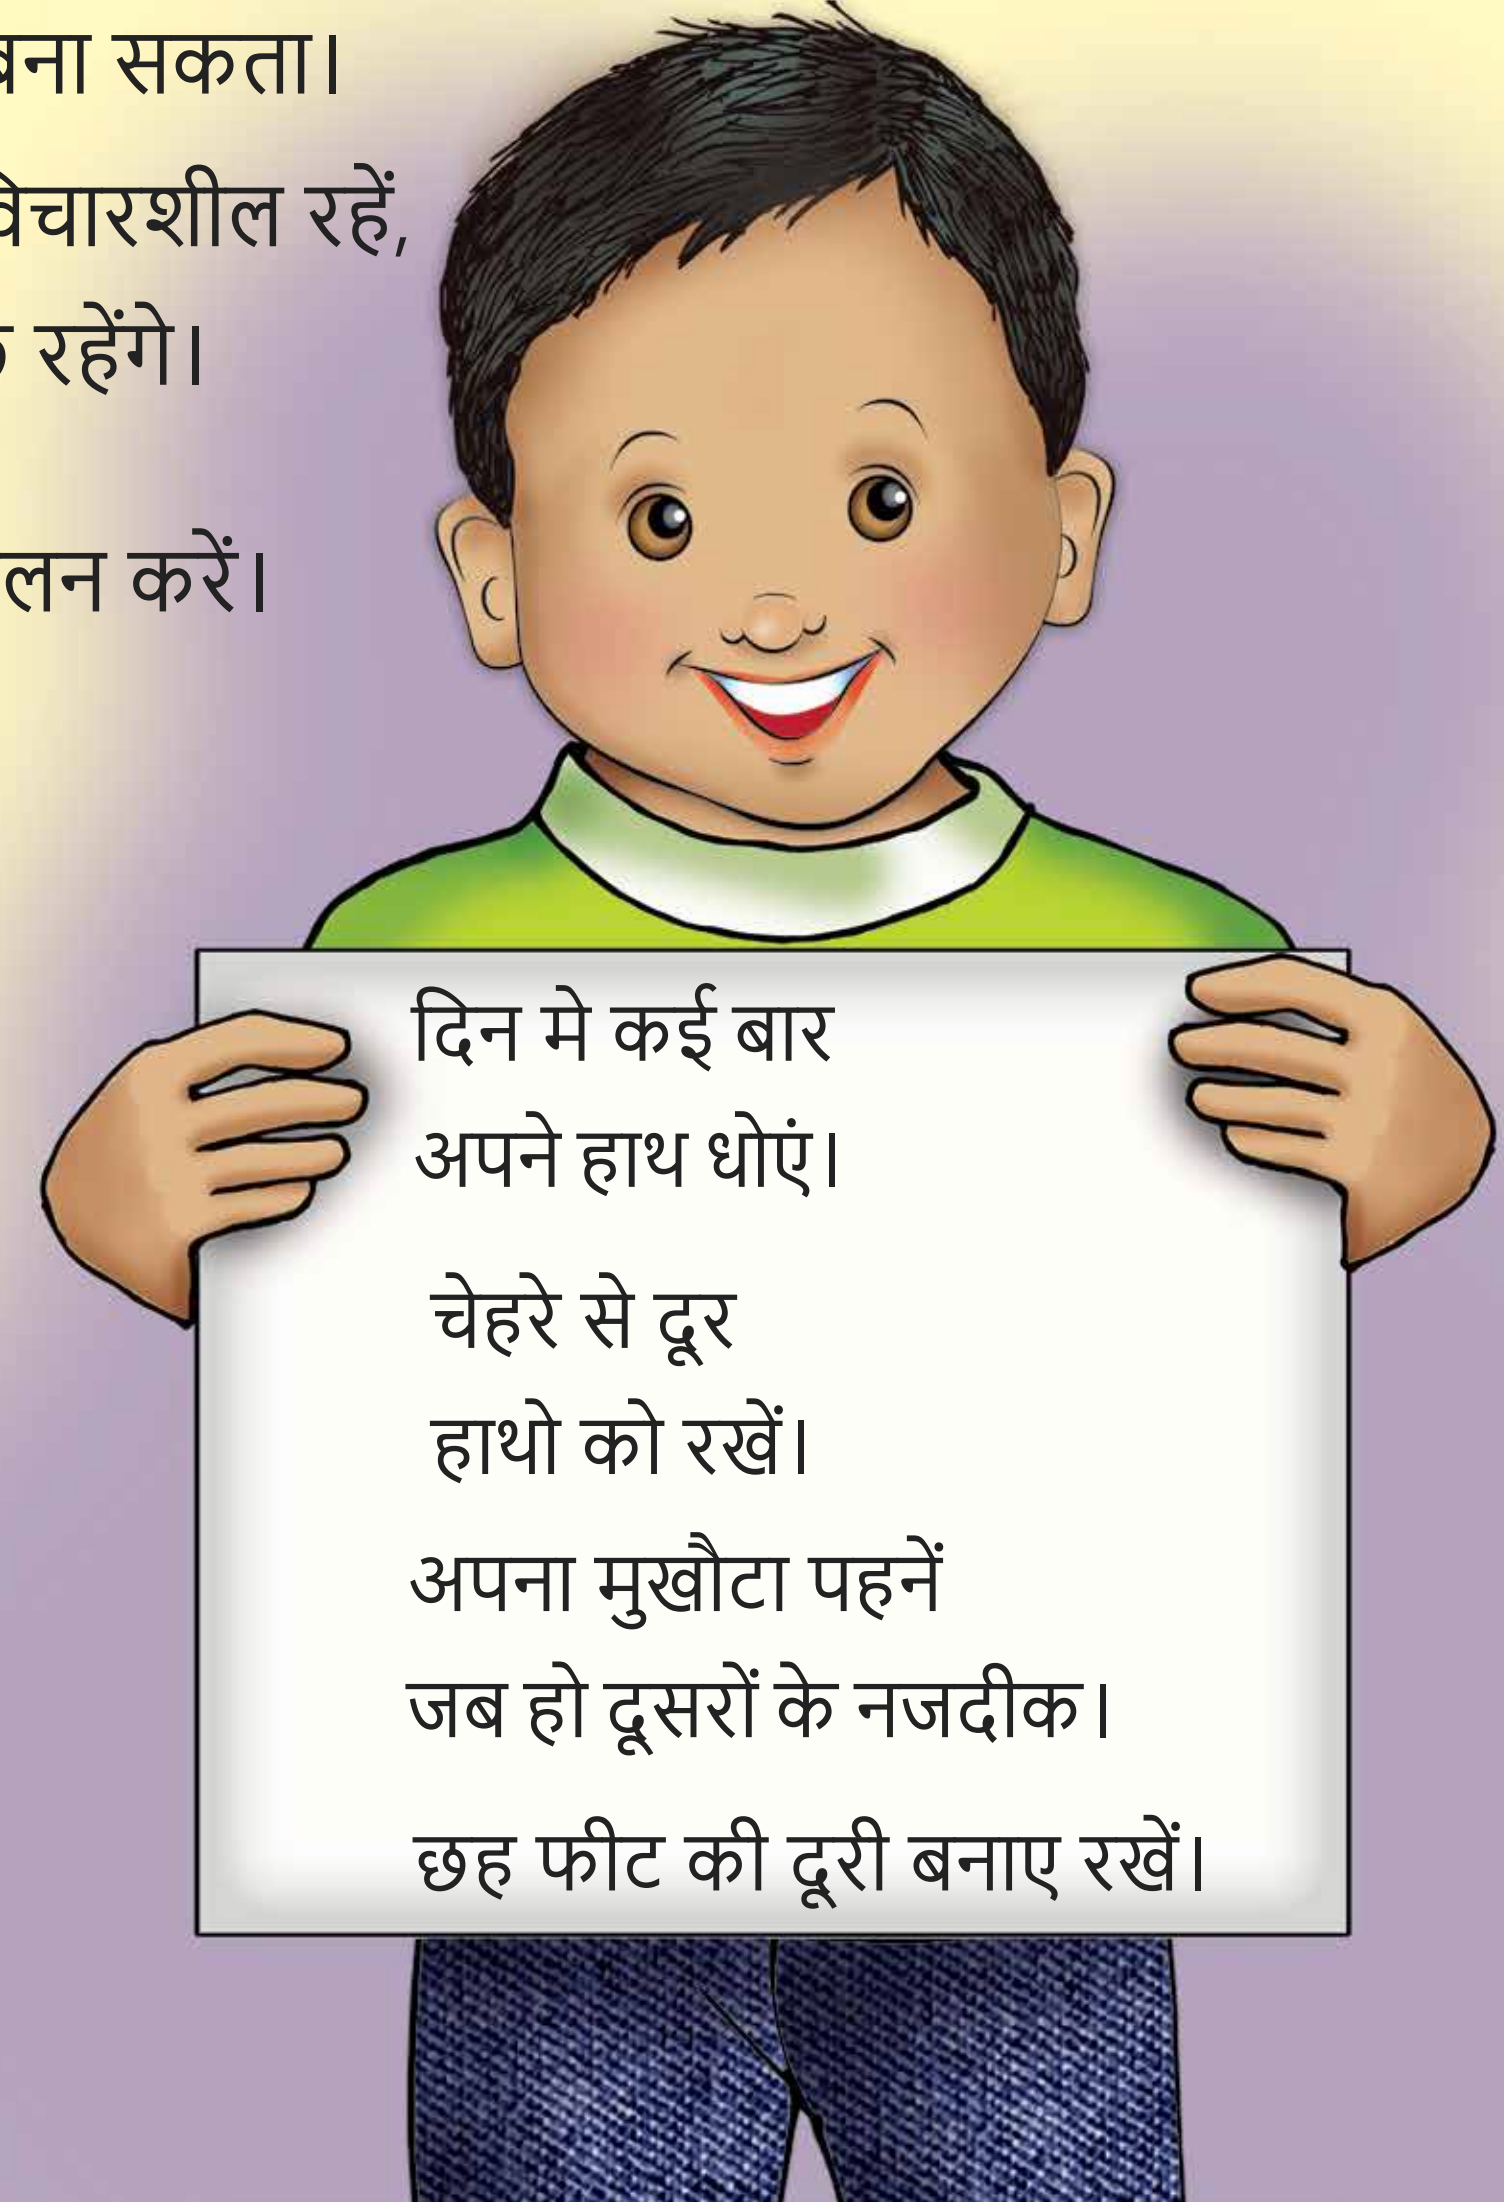 बना सकता।
विचारशील रहें,
रहेंगे।
करें।
दिन मे कई बार
अपने हाथ धोएं।
चेहरे से दूर
हाथो को रखें।
अपना मुखौटा पहनें
जब हो दूसरों के नजदीक।
छह फीट की दूरी बनाए रखें।